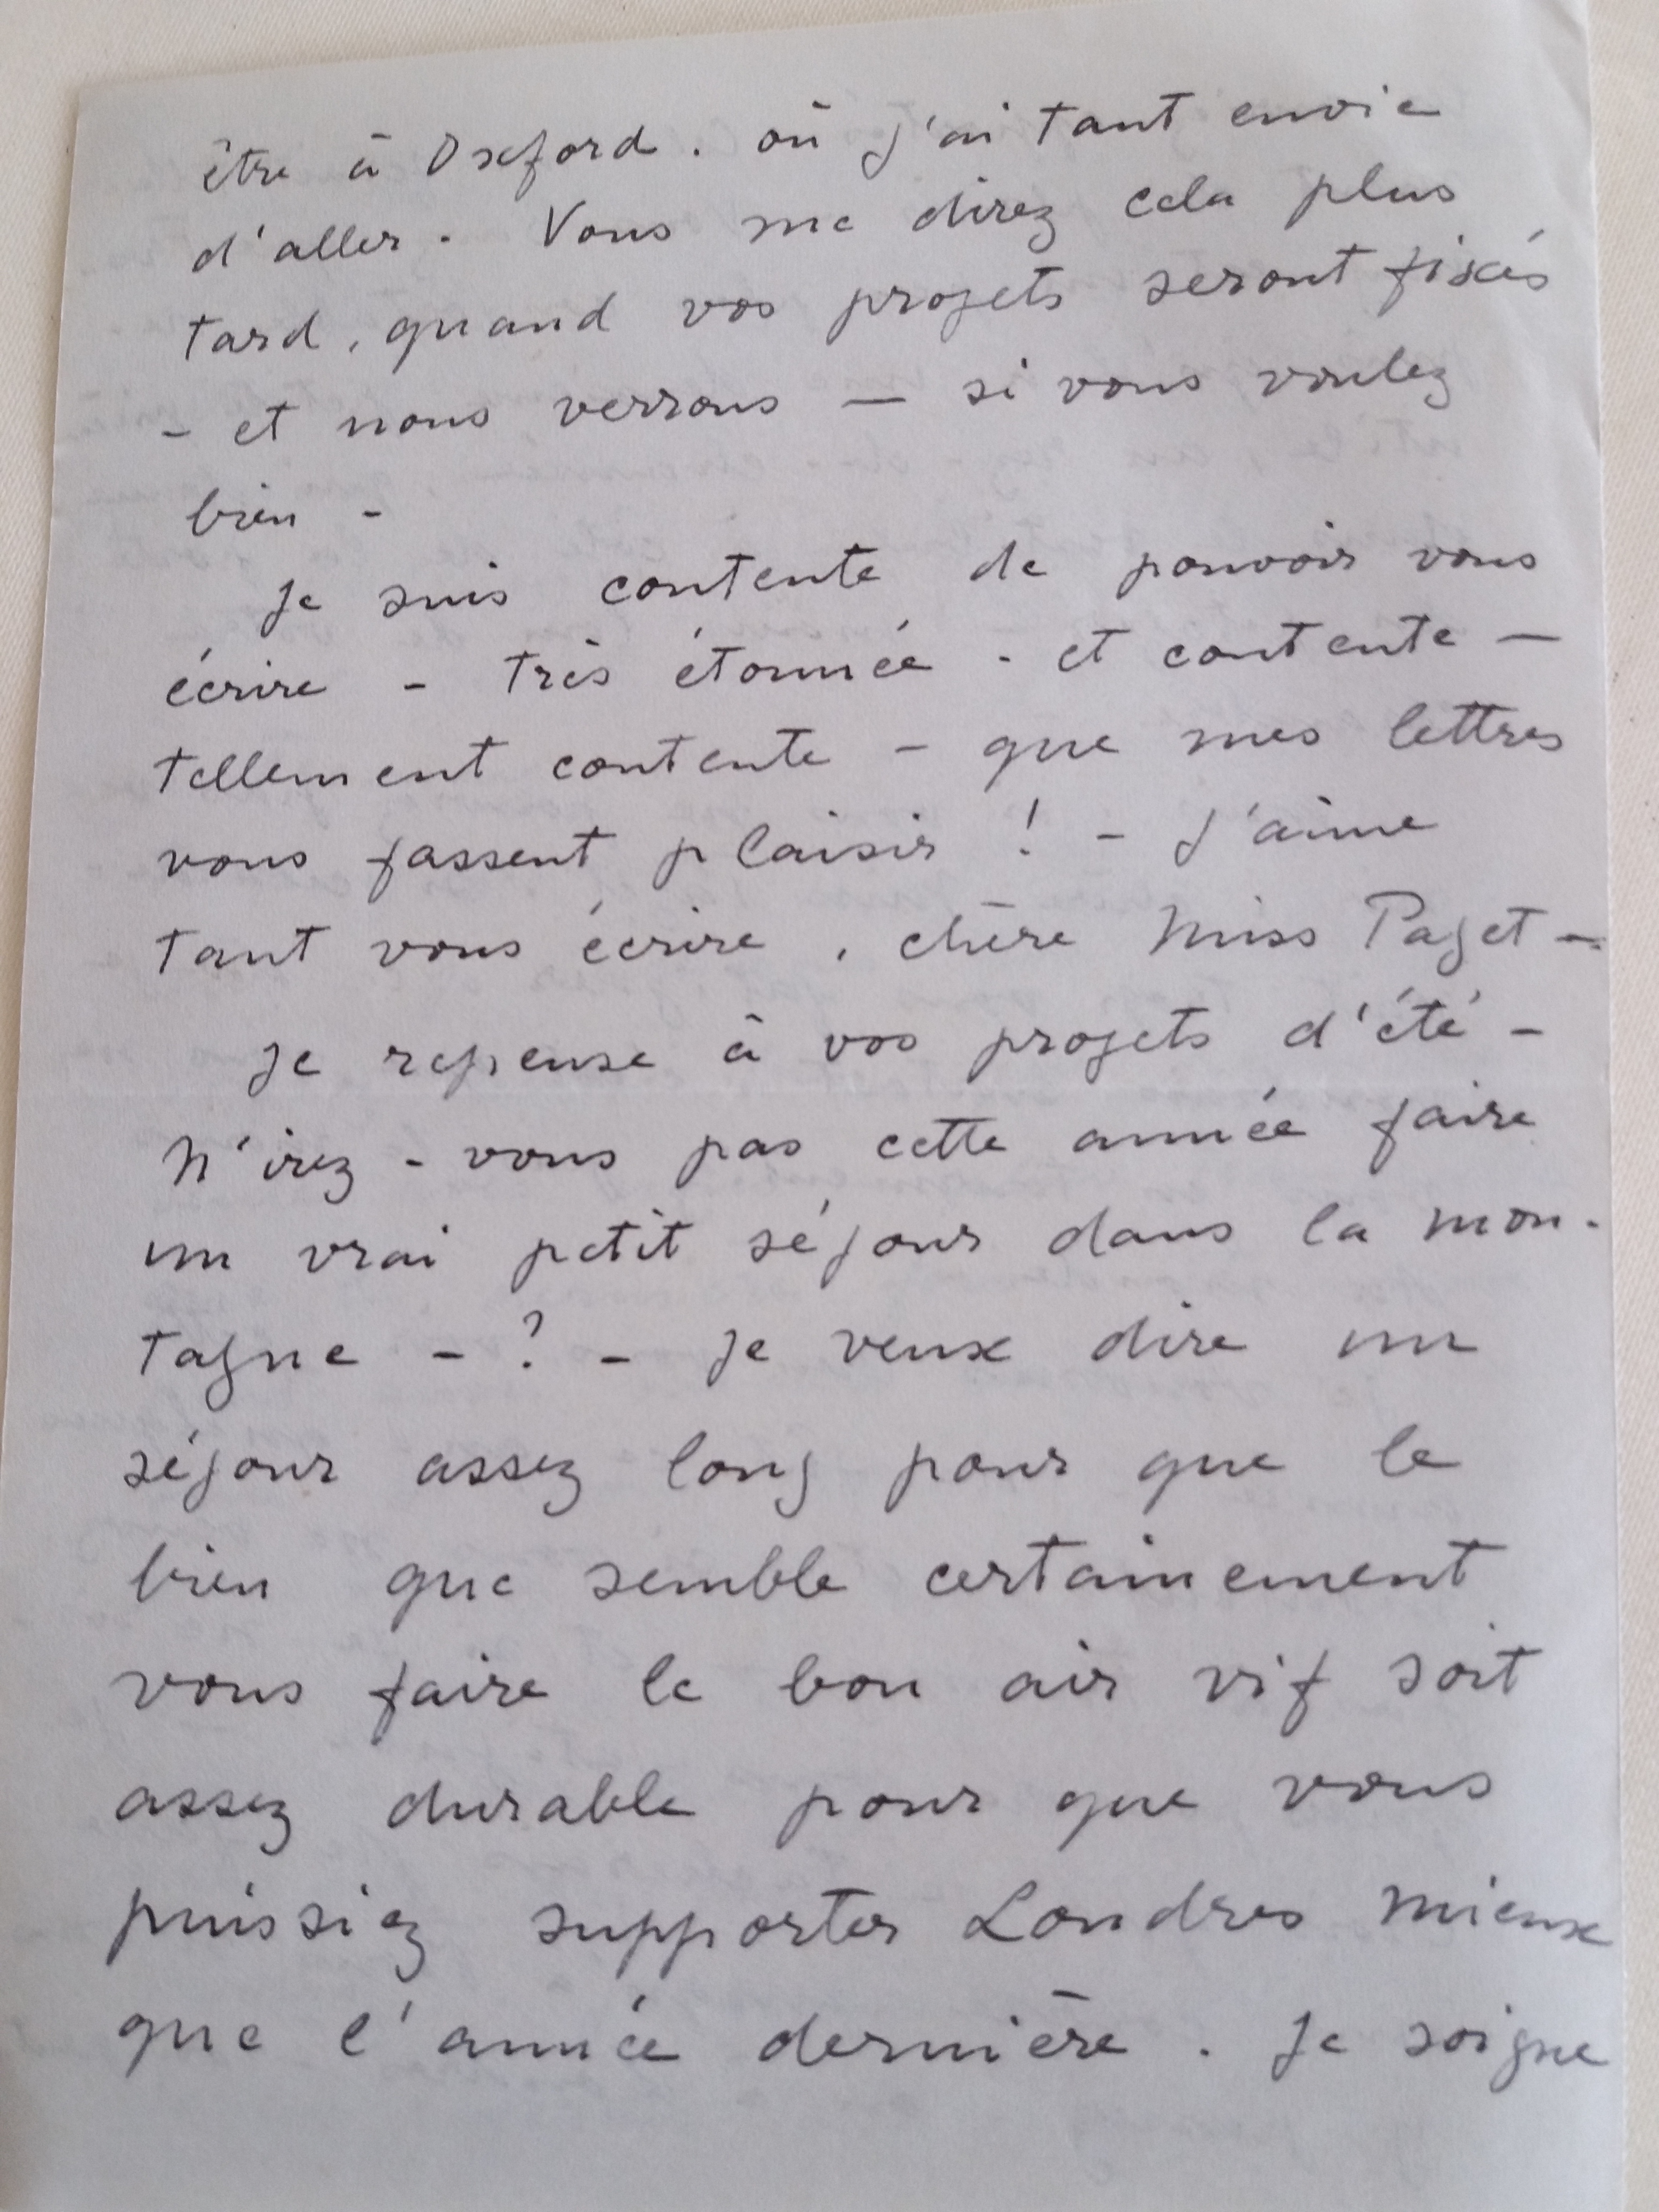 être à Oxford. où j'ai tant envie
d'aller - Vous me direz cela plus
tard, quand vos projets seront fixés
- et nous verrons - si vous voulez
bien -
Je suis contente de pouvoir vous
écrire - très étonnée - et contente -
tellement contente - que mes lettres
vous fassent plaisir ! - J'aime
tant vous écrire, chère Miss Paget -
Je repense à vos projets d'été -
N'irez-vous pas cette année faire
un vrai petit séjour dans la mon-
tagne - ? - Je veux dire un
séjour assez long pour que le
bien que semble certainement
vous faire le bon air vif soit
assez durable pour que vous
puissiez supporter Londres mieux
que l'année dernière. Je soigne